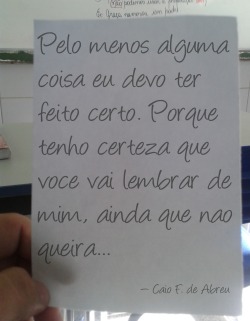 Pelo menos alguma
coisa eu devo ter
feito certo. Porque
tenho certeza que
voce vai lembrar de
mim, ainda que nao
queira...
— Caio F. de Abreu